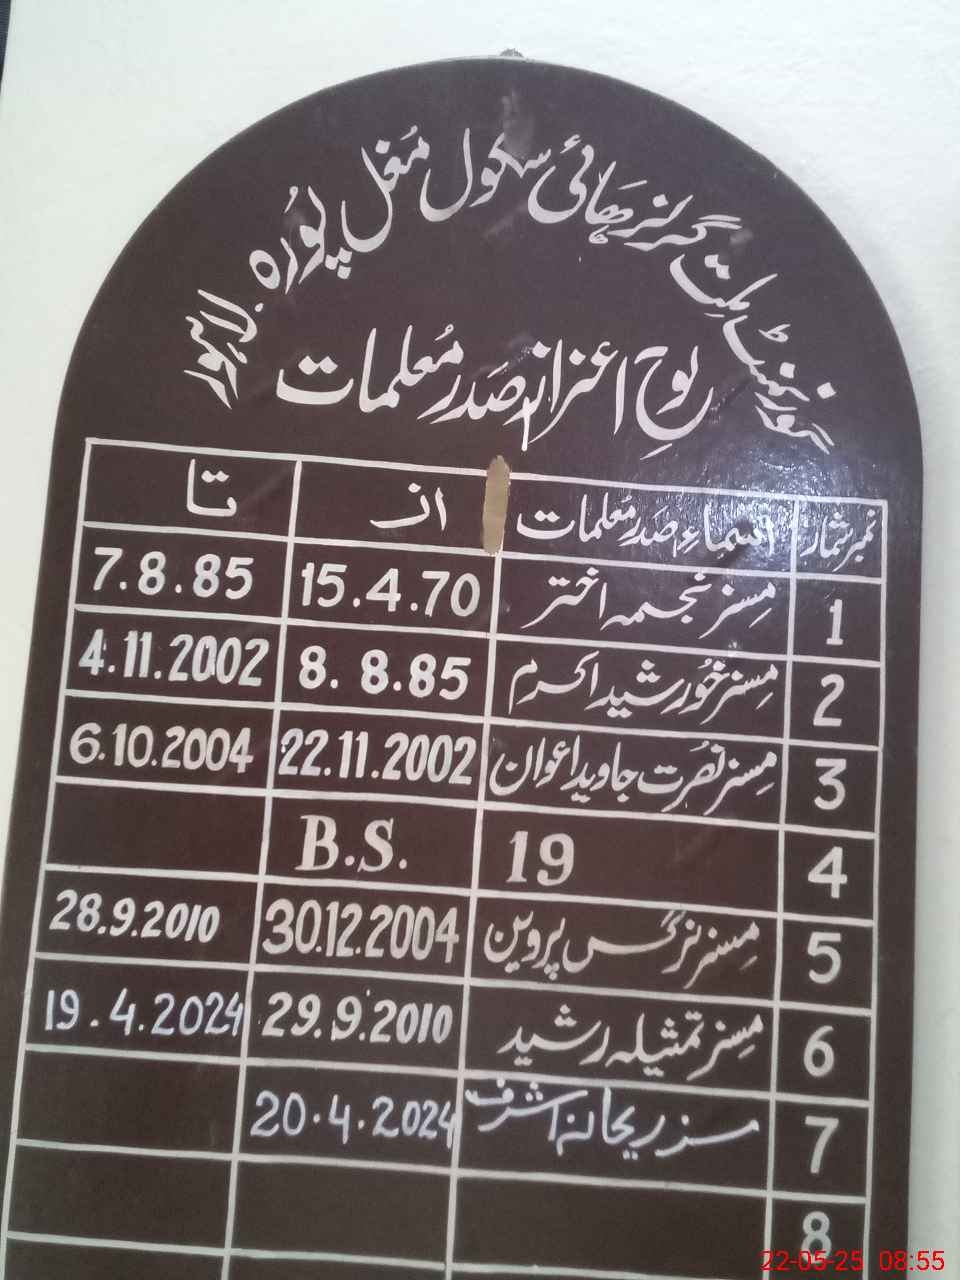 گورنمنٹ ملت گرلز ہائی سکول مغل پورہ۔ لاہور
لوحِ اعزاز صدر معلمات
نمبر شمار اسماءِ صدر معلمات از تا
1 مسز نجمہ اختر 15.4.70 7.8.85
2 مسز خورشید اکرم 8.8.85 4.11.2002
3 مسز نصرت جاوید اعوان 22.11.2002 6.10.2004
4 19 B.S.
5 مسز نرگس پروین 30.12.2004 28.9.2010
6 مسز تمثیلہ رشید 29.9.2010 19.4.2024
7 مسز ریحانہ اشرف 20.4.2024
8
22-05-25 08:55